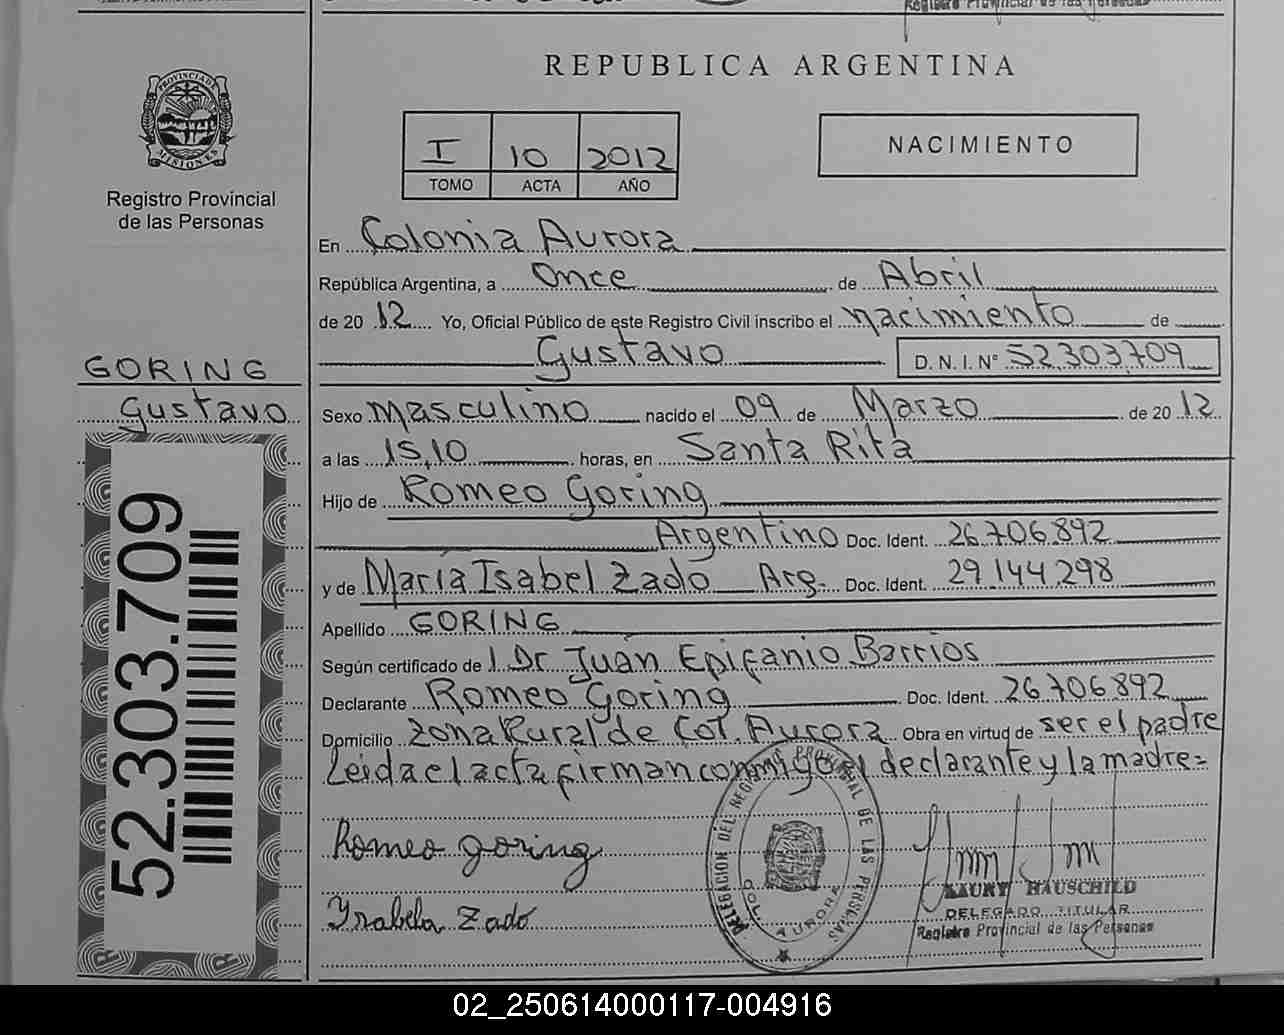 Registro Provincial de las Personas
PROVINCIA DE MISIONES
Registro Provincial
de las Personas
REPUBLICA ARGENTINA
I 10 2012
TOMO ACTA AÑO
NACIMIENTO
En Colonia Aurora
República Argentina, a Once de Abril
de 20 12 Yo, Oficial Público de este Registro Civil inscribo el nacimiento de
Gustavo D. N. I. N° 52.303.709
GORING
Gustavo
Sexo masculino nacido el 09 de Marzo de 20 12
a las 15,10 horas, en Santa Rita
Hijo de Romeo Goring
Argentino Doc. Ident. 26.706.892
y de María Isabel Zado Arg. Doc. Ident. 29.144.298
Apellido GORING
Según certificado de l Dr Juan Epifanio Barrios
Declarante Romeo Goring Doc. Ident. 26.706.892
Domicilio Zona Rural de Col. Aurora Obra en virtud de ser el padre
Leida el acta firman conmigo el declarante y la madre=
52.303.709
Romeo Goring
Ysabela Zado
DELEGACION DEL REGISTRO PROVINCIAL DE LAS PERSONAS
COL. AURORA
HAUSCHILD
DELEGADO TITULAR
Registro Provincial de las Personas
02_250614000117-004916